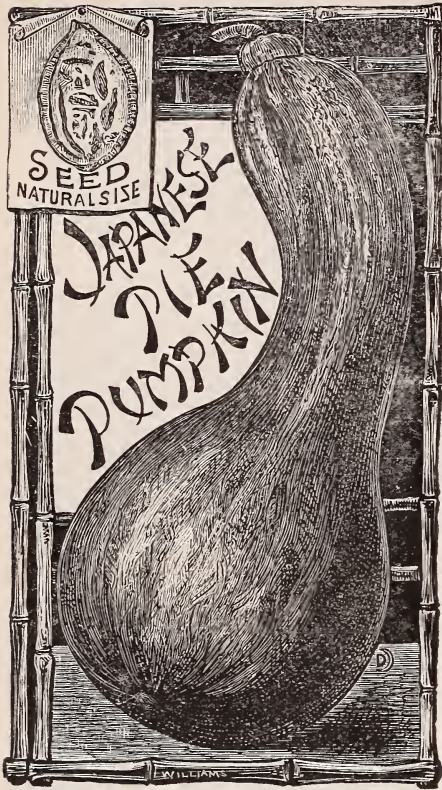 SEED
NATURAL SISE
JAPANESE
PIE
PUMPKIN
D
WILLIAMS